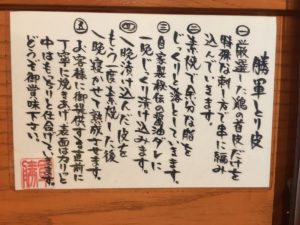 勝軍とり皮
一 厳選した鶏の首皮だけを
特殊な刺し方で串に編み
込んでいきます。
二 素焼で余分な脂を
じっくりと落としていきます。
三 自家製秘伝の醤油ダレに
一晩じっくり漬け込みます。
四 一晩漬け込んだ皮を
もう一度素焼した後
一晩寝かせて熟成させます。
五 お客様に御提供する直前に
丁寧に焼きあげ、表面はカリっと
中はもっちりと仕合げています。
どうぞ御賞味下さい。
勝